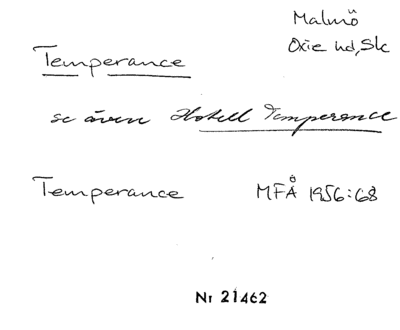 Malmö
Oxie hd, Sk
Temperance
se även Hotell Temperence
Temperance MFÅ 1956:68
Nr 21462